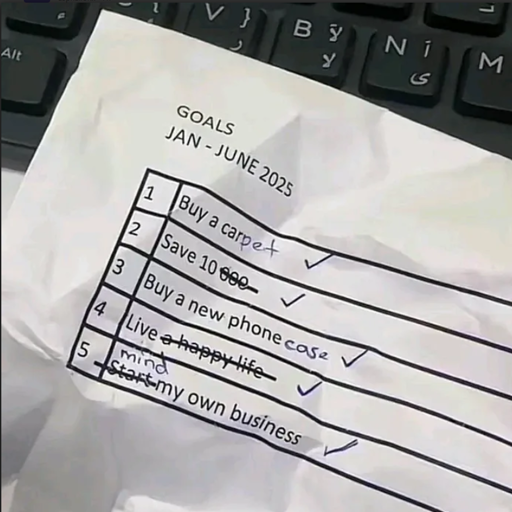 Alt
V }
B لآ
لا
N آ
ى
M
GOALS
JAN - JUNE 2025
1 Buy a carpet ✓
2 Save 10 000 ✓
3 Buy a new phone case ✓
4 Live a happy life ✓
mind
5 Start my own business ✓